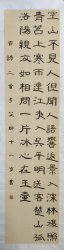 空山不見人但聞人語響返景入深林復照
青苔上寒雨連江夜入吳平明送客楚山孤
洛陽親友如相問一片冰心在玉壺
古詩二首